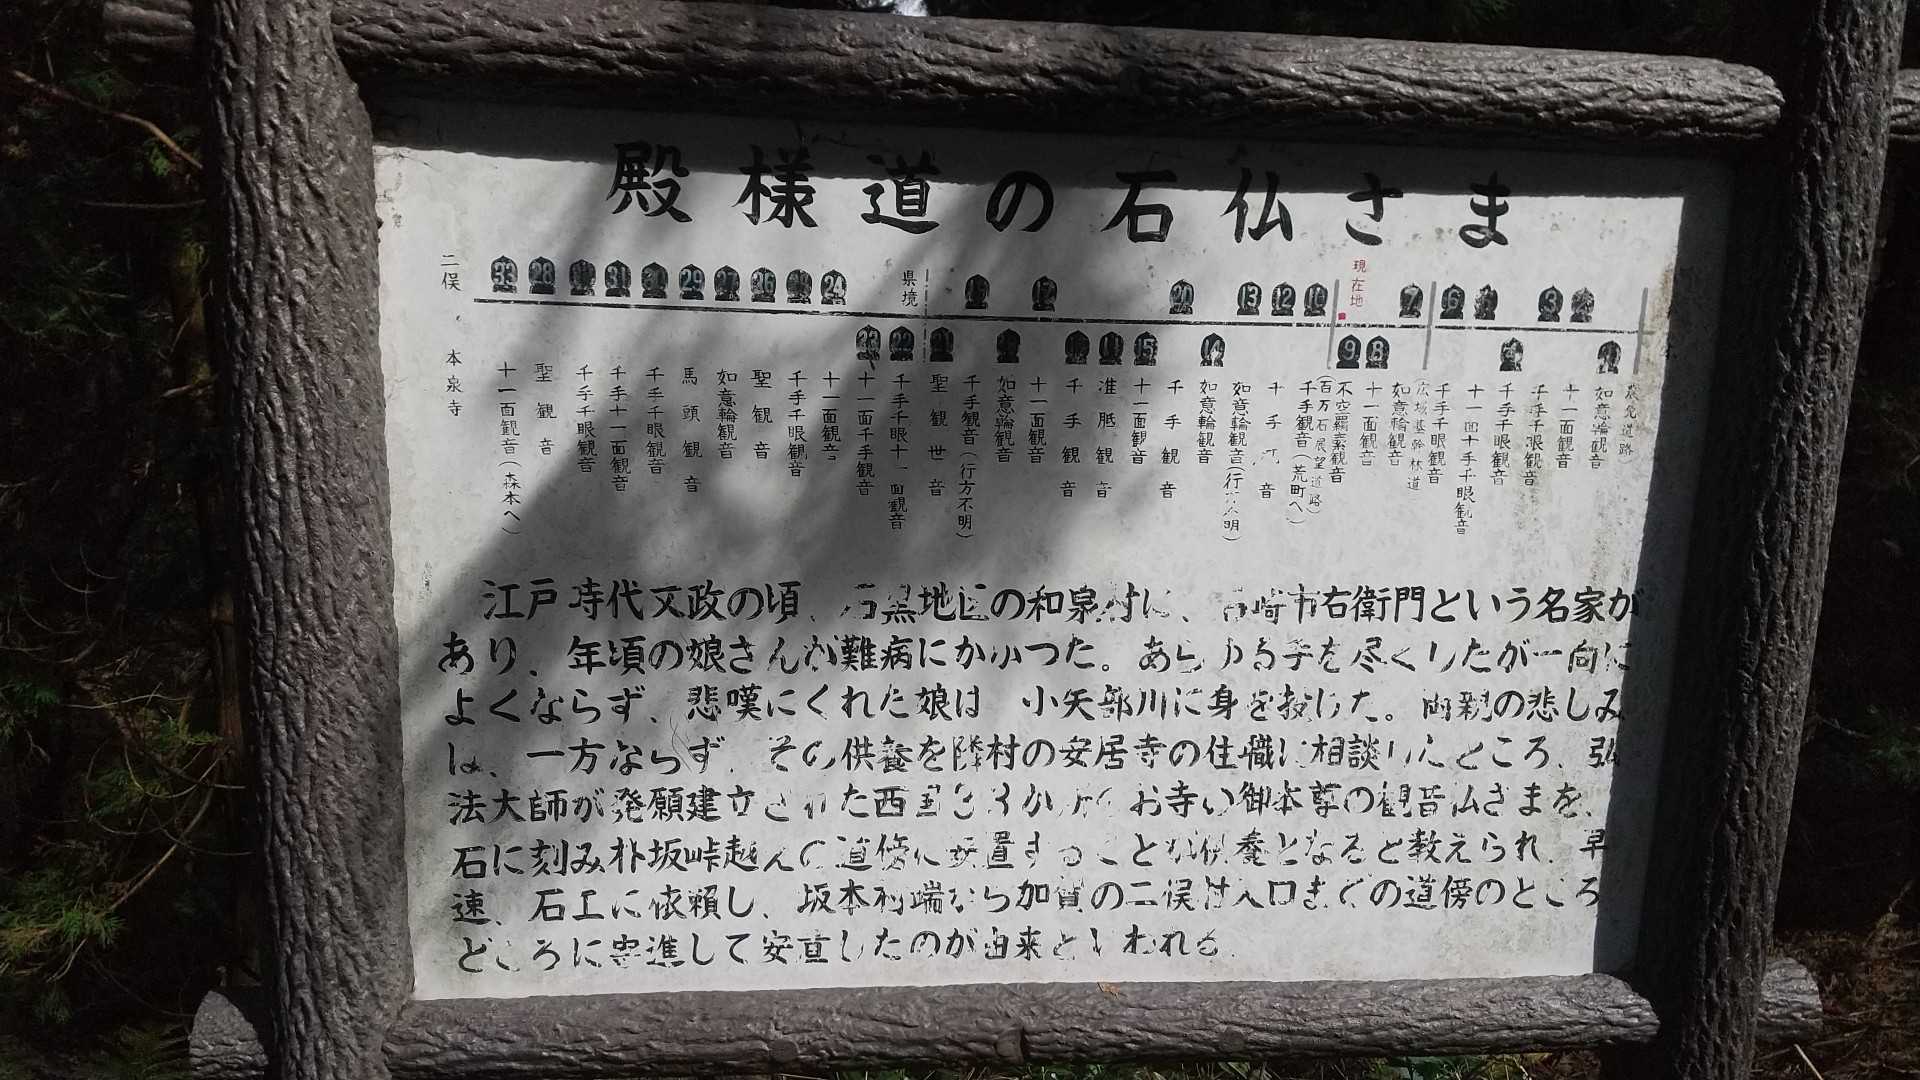 殿様道の石仏さま
現在地
県境
二俣 本泉寺
33 28 31 30 29 27 26 24
20 13 12 10 7 6 3
23 22 21 11 15 14 9 8
十一面観音(森本へ)
聖観音
千手千眼観音
千手十一面観音
千手千眼観音
馬頭観音
如意輪観音
聖観音
千手千眼観音
十一面観音
十一面千手観音
千手千眼十一面観音
聖観世音
千手観音(行方不明)
如意輪観音
十一面観音
千手観音
准胝観音
十一面観音
千手観音
如意輪観音
如意輪観音(行方不明)
千手観音(荒町へ)
(百万石展望道路)
不空羂索観音
十一面観音
如意輪観音
広域基幹林道
千手千眼観音
十一面千手千眼観音
千手千眼観音
千手千眼観音
十一面観音
如意輪観音
江戸時代文政の頃、石黒地区の和泉村に、石崎市右衛門という名家が
あり、年頃の娘さんが難病にかかつた。あらゆる手を尽くしたが一向に
よくならず、悲嘆にくれた娘は 小矢部川に身を投じた。両親の悲しみ
は、一方ならず、その供養を隣村の安居寺の住職に相談したところ、弘
法大師が発願建立された西国33か所のお寺の御本尊の観音仏さまを、
石に刻み朴坂峠越えの道傍に安置することが供養となると教えられ、早
速、石工に依頼し、坂本村端から加賀の二俣村入口までの道傍のところ
どころに寄進して安置したのが由来といわれる